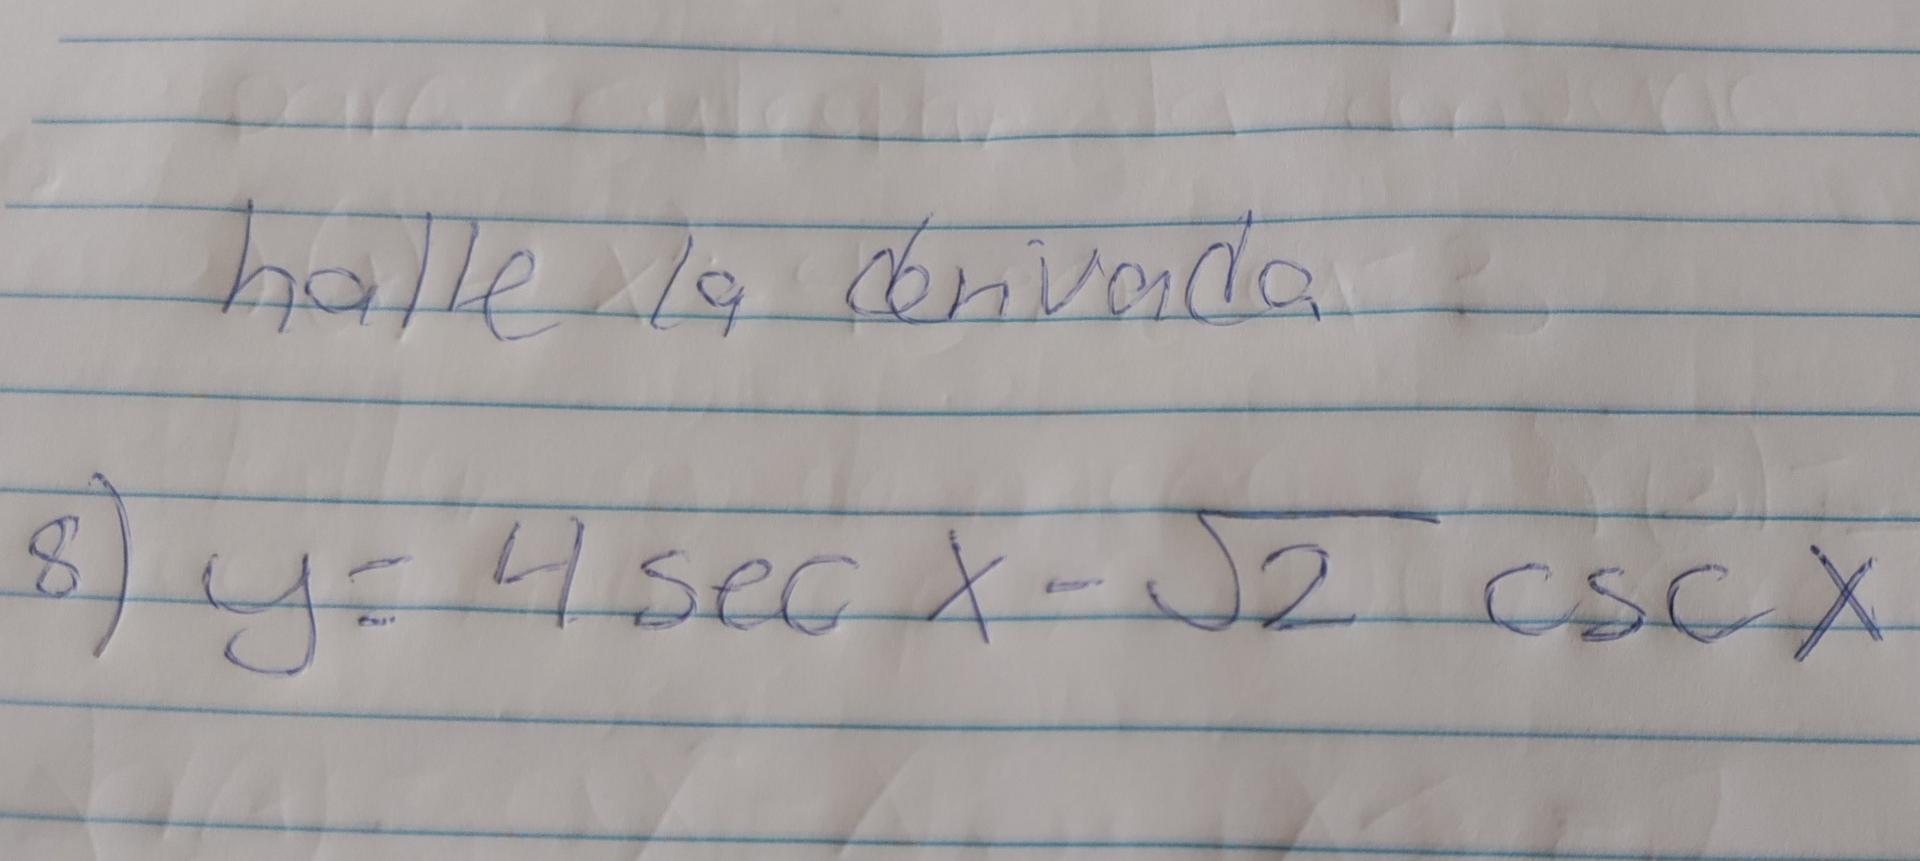 halle la derivada
8) y = 4 sec x - √2 csc x